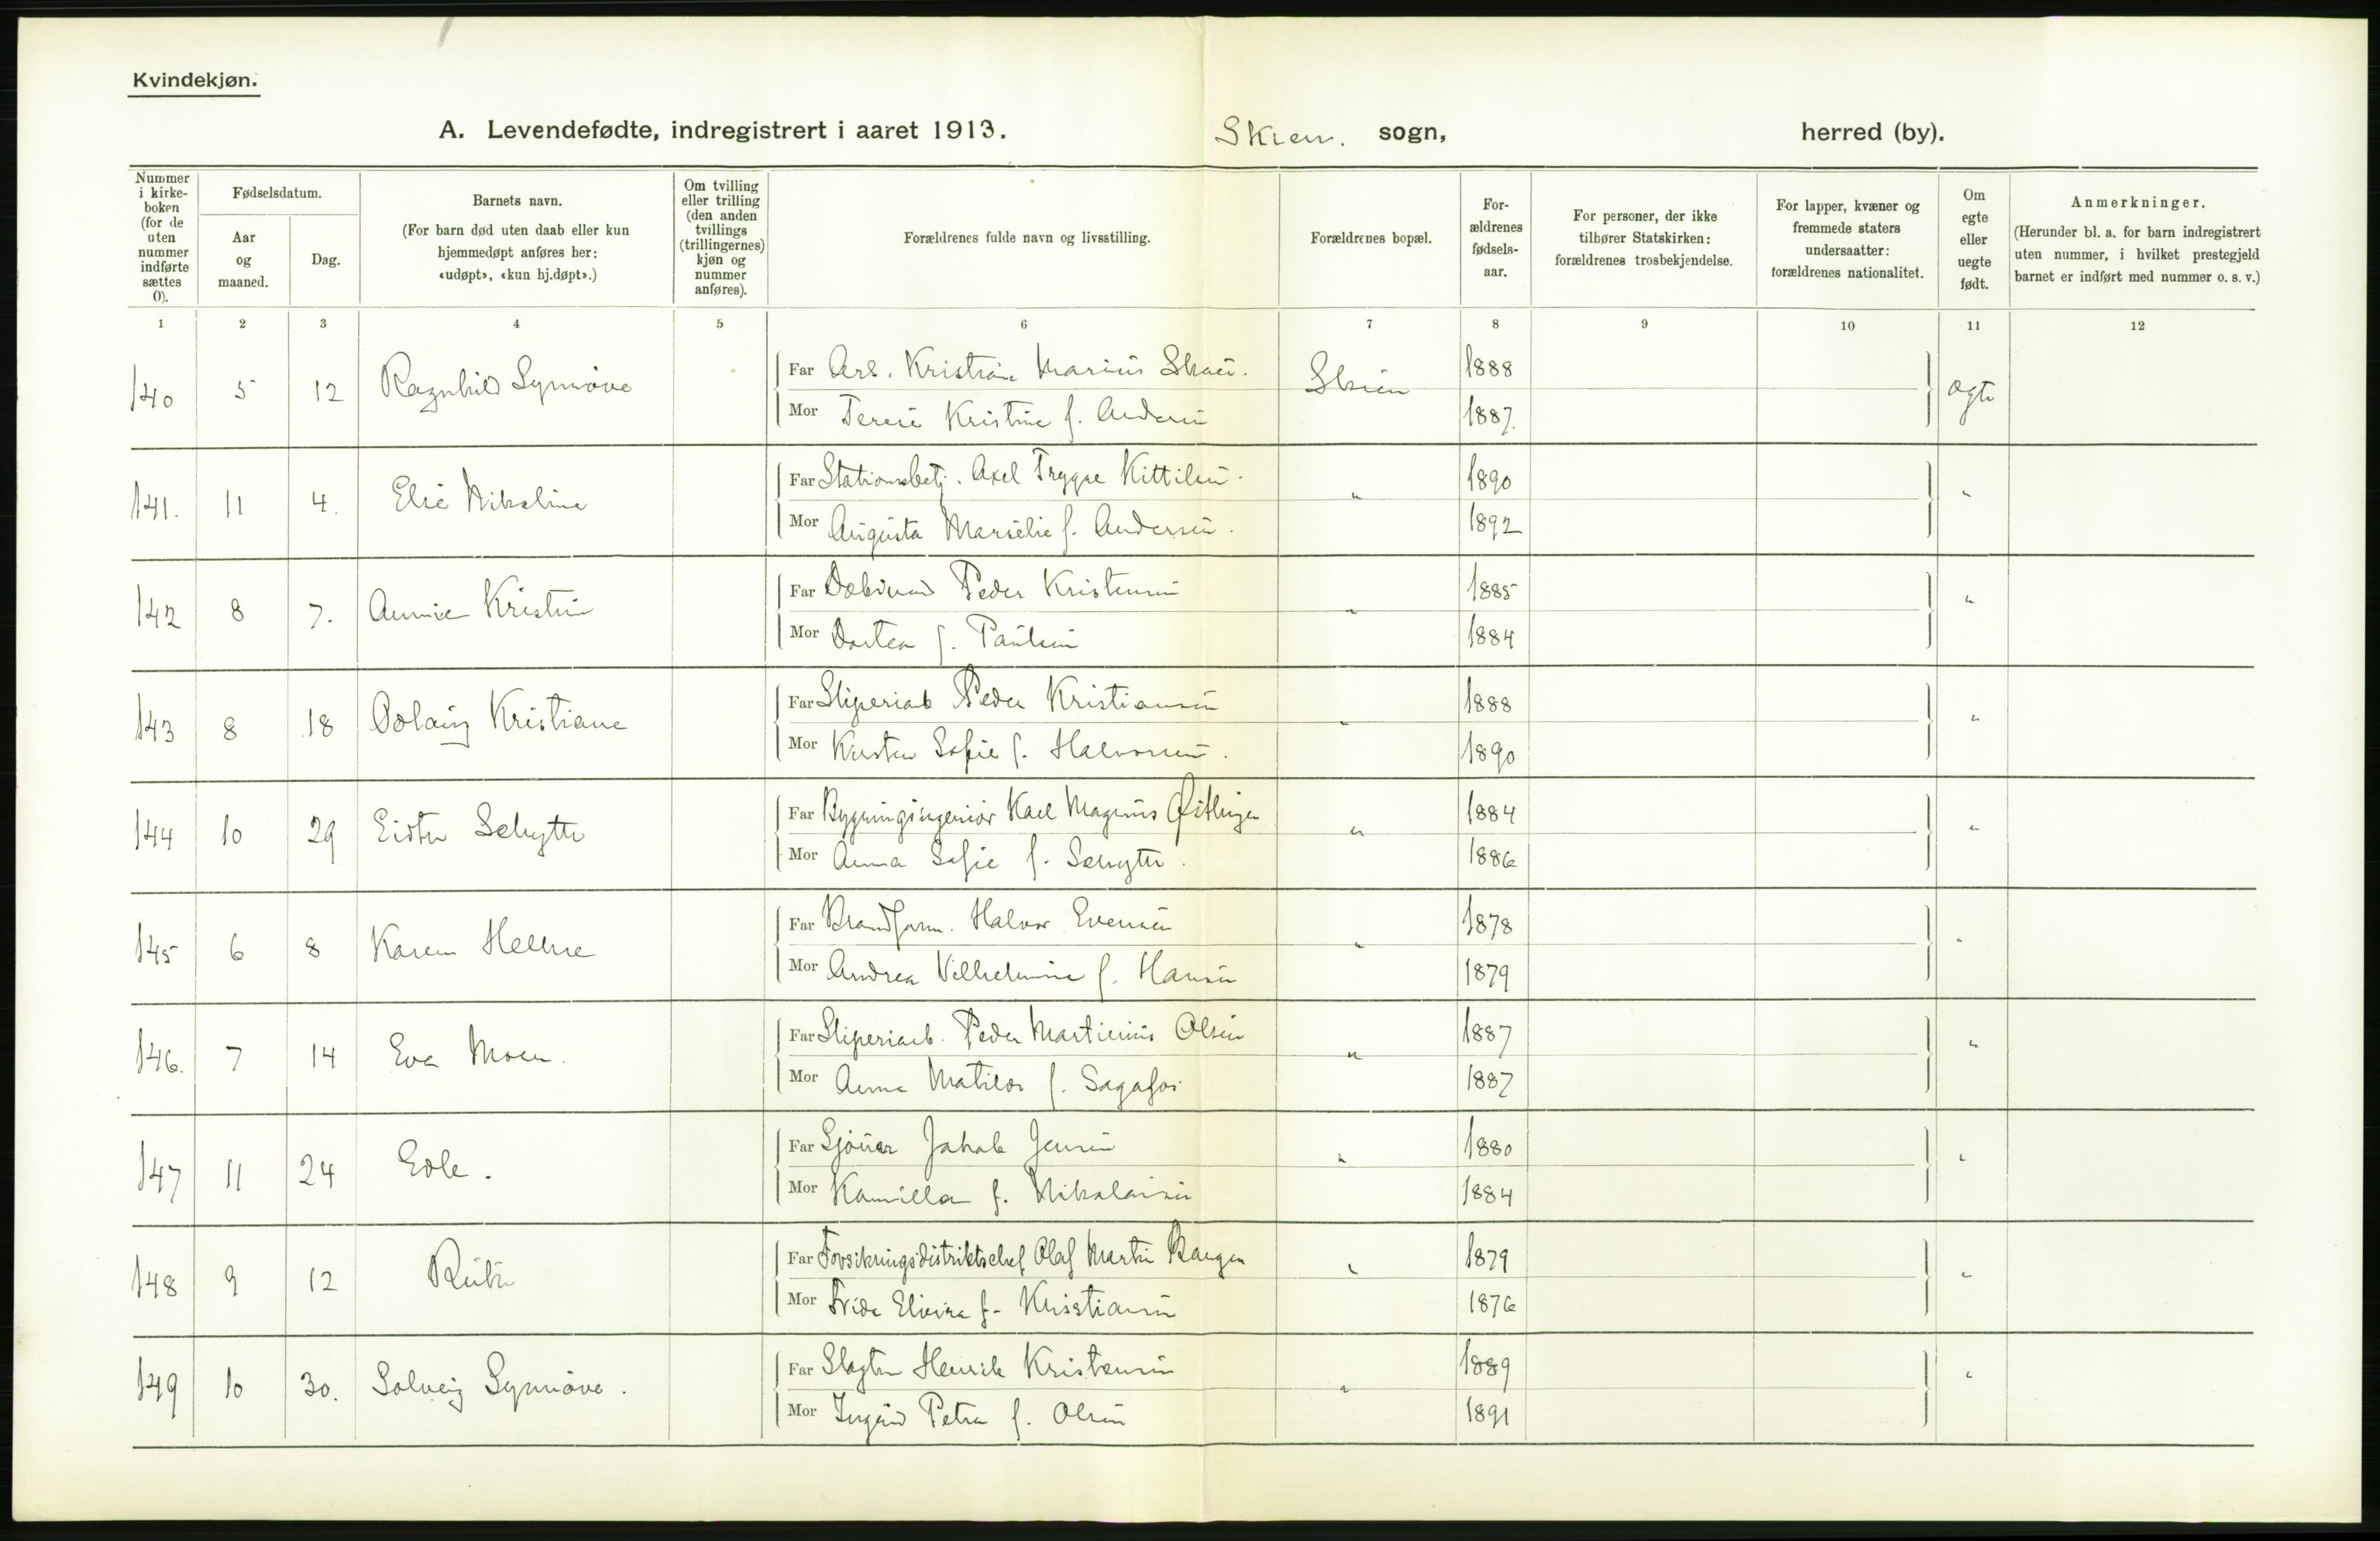 Kvindekjøn.
A. Levendefødte, indregistrert i aaret 1913. Skien. sogn, herred (by).
Nummer i kirke-boken (for de uten nummer indførte sættes 0).
Fødselsdatum.
Aar og maaned.
Dag.
Barnets navn.
(For barn død uten daab eller kun hjemmedøpt anføres her: «udøpt», «kun hj.døpt».)
Om tvilling eller trilling (den anden tvillings (trillingernes) kjøn og nummer anføres).
Forældrenes fulde navn og livsstilling.
Forældrenes bopæl.
For-ældrenes fødsels-aar.
For personer, der ikke tilhører Statskirken: forældrenes trosbekjendelse.
For lapper, kvæner og fremmede staters undersaatter: forældrenes nationalitet.
Om egte eller uegte født.
Anmerkninger.
(Herunder bl. a. for barn indregistrert uten nummer, i hvilket prestegjeld barnet er indført med nummer o. s. v.)
1 2 3 4 5 6 7 8 9 10 11 12
140 5 12 Ragnhild Synnøve Far Arb. Kristian Marius Skien 1888 ægte
Mor Terese Kristine f. Andersen 1887.
141. 11 4. Elie Nikoline Far Stationsbetj. Axel Trygve Kittilsen. " 1890 "
Mor Augusta Marselie f. Andersen. 1892
142 8 7. Annie Kristin Far Peder Kristensen " 1885 "
Mor Dortea f. Paulsen 1884
143 8 18 Oslaug Kristiane Far Sliperiarb Peder Kristiansen " 1888 "
Mor Kirsten Sofie f. Halvorsen. 1890
144 10 29 Schytte Far Bygningsingeniør Karl Magnus " 1884 "
Mor Anna Sofie f. Schytte. 1886
145 6 8 Karen Helene Far Brandform. Halvor Evensen " 1878 "
Mor Andrea Vilhelmine f. Hansen 1879
146. 7 14 Eva Moen. Far Sliperiarb. Peder Martinius Olsen " 1887 "
Mor Anna Matilde f. Sagafos 1887
147 11 24 Edle. Far Jakob Jensen " 1880 "
Mor Kamilla f. Nikolaisen 1884
148 9 12 Ruth Far Forsikringsdistriktschef Olaf Martin " 1879 "
Mor Frida Elvira f. Kristiansen 1876
149 10 30. Solveig Synnøve. Far Slagter Henrik Kristensen " 1889 "
Mor Ingrid Petra f. Olsen 1891